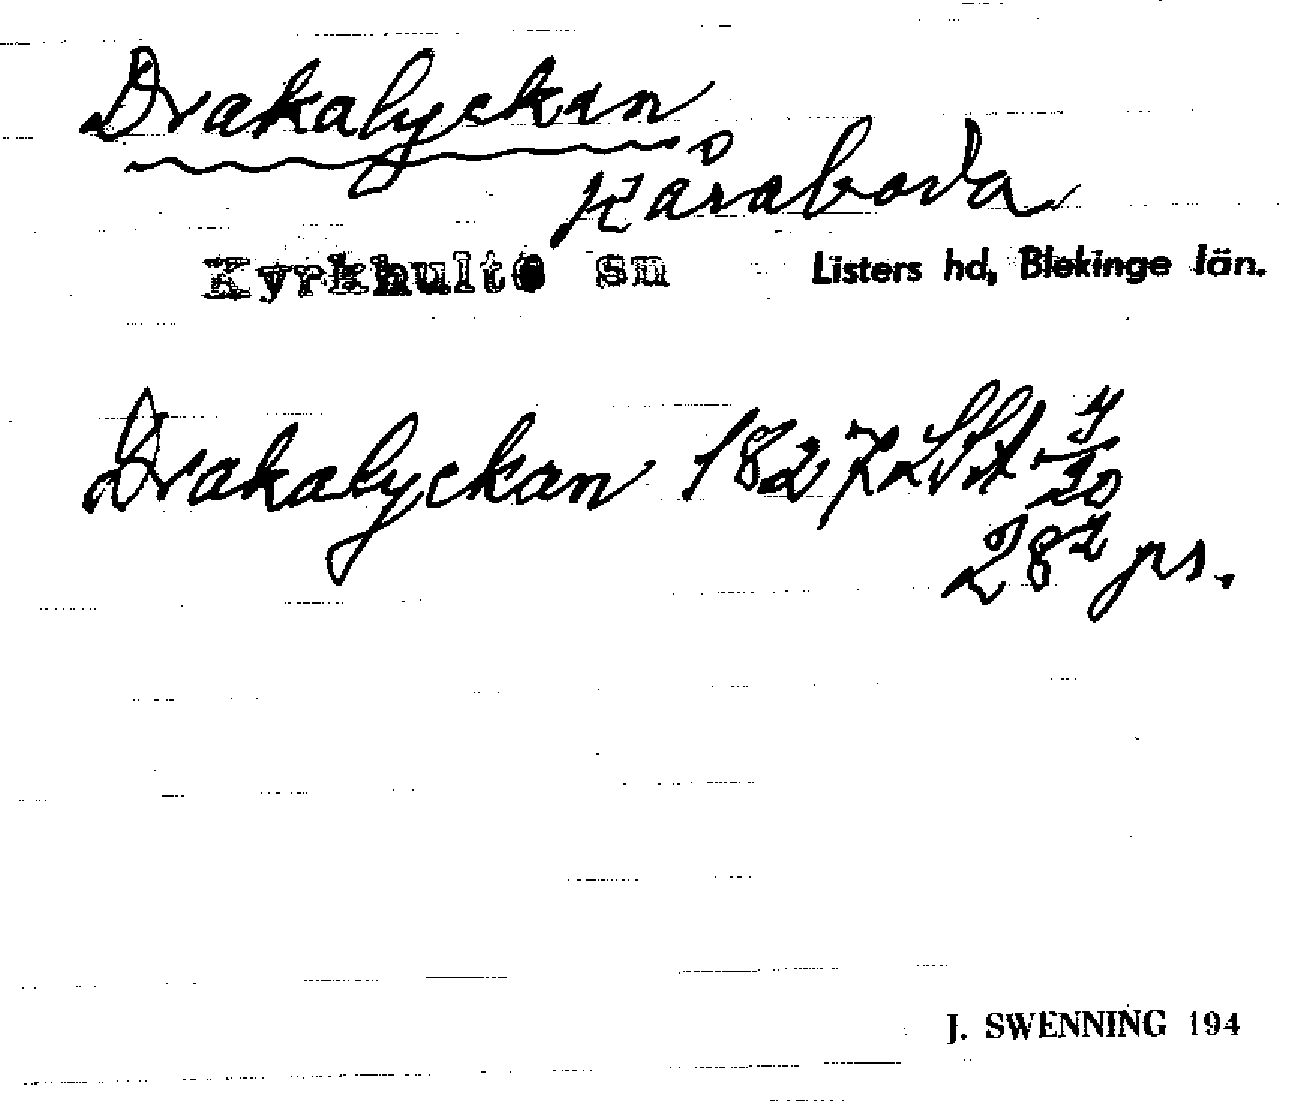 Drakalyckan
Kåraboda
Kyrkhults sn Listers hd, Blekinge län.
Drakalyckan 1827
28 prs.
J. SWENNING 194